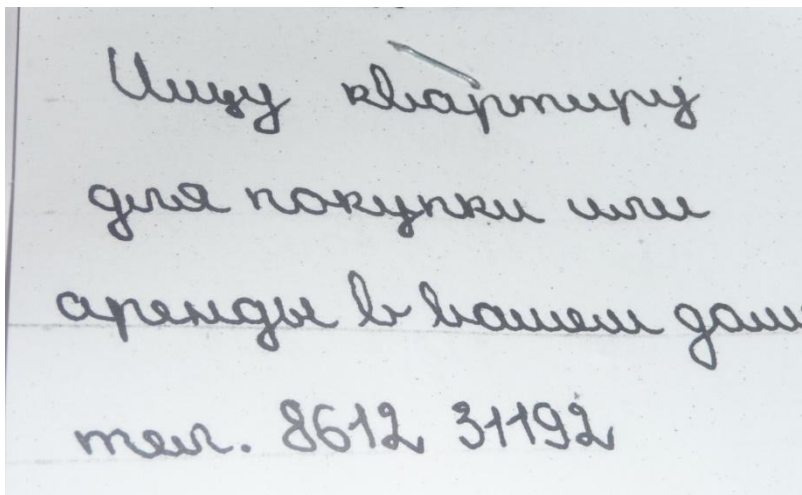 Ищу квартиру
для покупки или
аренды в вашем доме
тел. 8612 31192